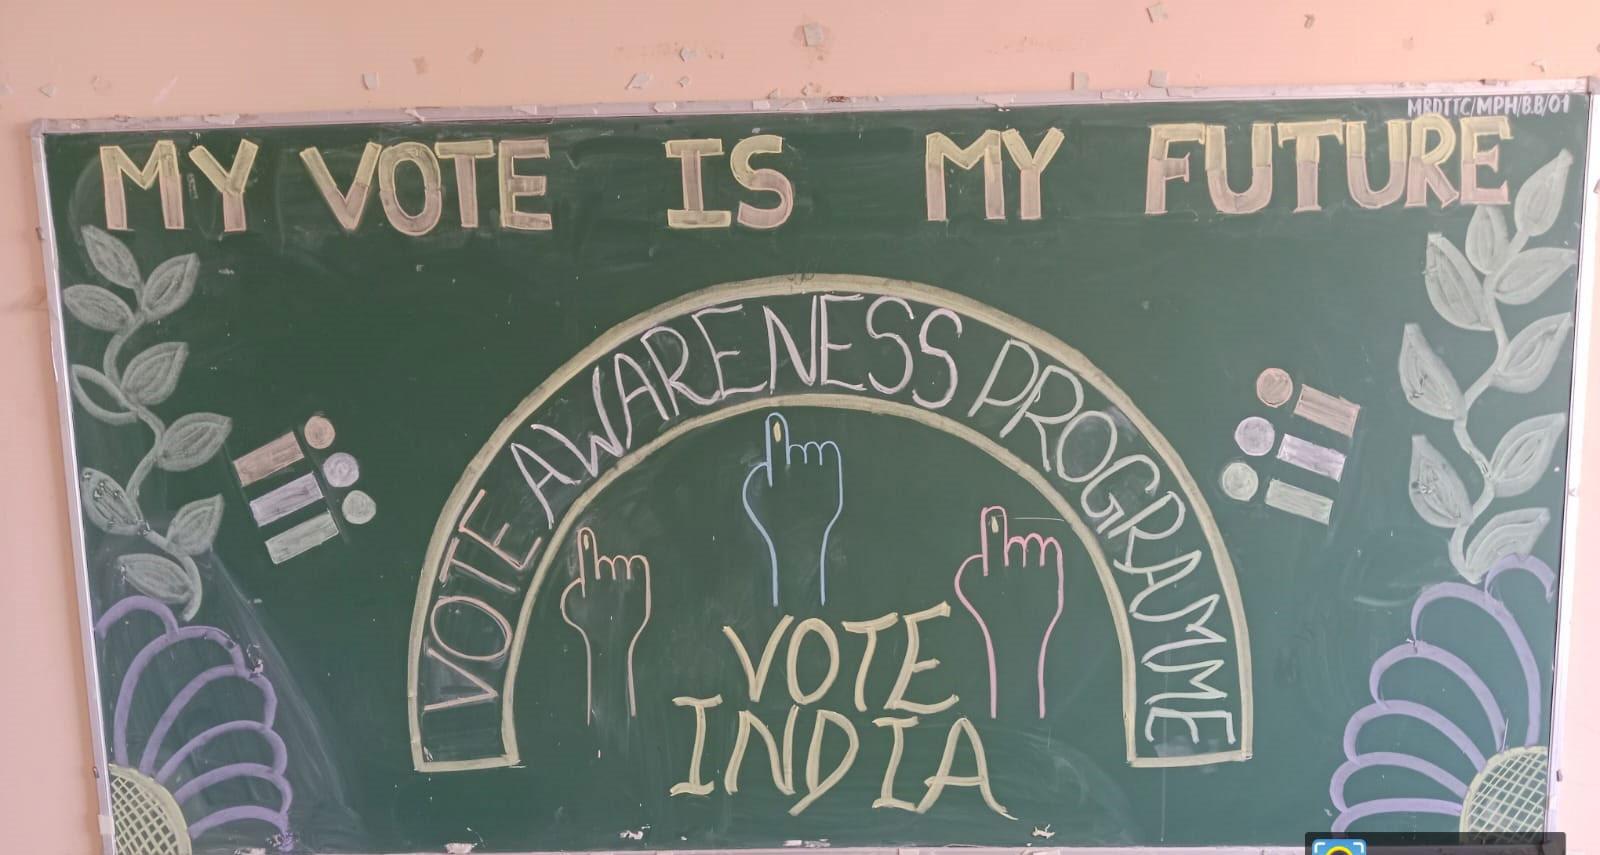 MBDTTC/MPH/B.B/01
MY VOTE IS MY FUTURE
VOTE AWARENESS PROGRAMME
VOTE
INDIA